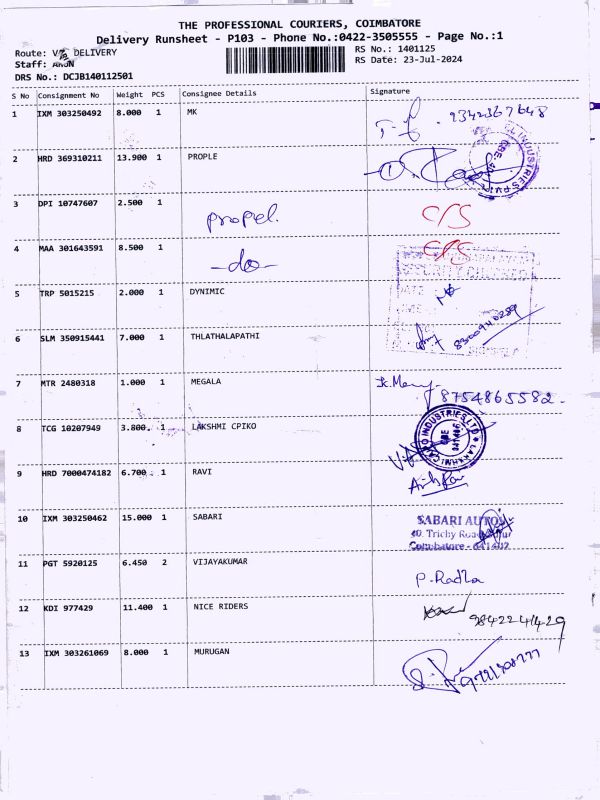 THE PROFESSIONAL COURIERS, COIMBATORE
Delivery Runsheet - P103 - Phone No.:0422-3505555 - Page No.:1
Route: DELIVERY
RS No.: 1401125
Staff: ARUN
RS Date: 23-Jul-2024
DRS No.: DCJB140112501
S No Consignment No Weight PCS Consignee Details Signature
1 IXM 303250492 8.000 1 MK 9342867648
2 HRD 369310211 13.900 1 PROPLE
3 DPI 10747607 2.500 1 propel. C/S
4 MAA 301643591 8.500 1 -do- C/S
5 TRP 5015215 2.000 1 DYNIMIC
6 SLM 350915441 7.000 1 THLATHALAPATHI
7 MTR 2480318 1.000 1 MEGALA 8754865582.
8 TCG 10207949 3.800 1 LAKSHMI CPIKO
9 HRD 7000474182 6.700 1 RAVI
10 IXM 303250462 15.000 1 SABARI SABARI AUTOS
40, Trichy Road
Coimbatore -
11 PGT 5920125 6.450 2 VIJAYAKUMAR P. Radha
12 KDI 977429 11.400 1 NICE RIDERS 9842241429
13 IXM 303261069 8.000 1 MURUGAN